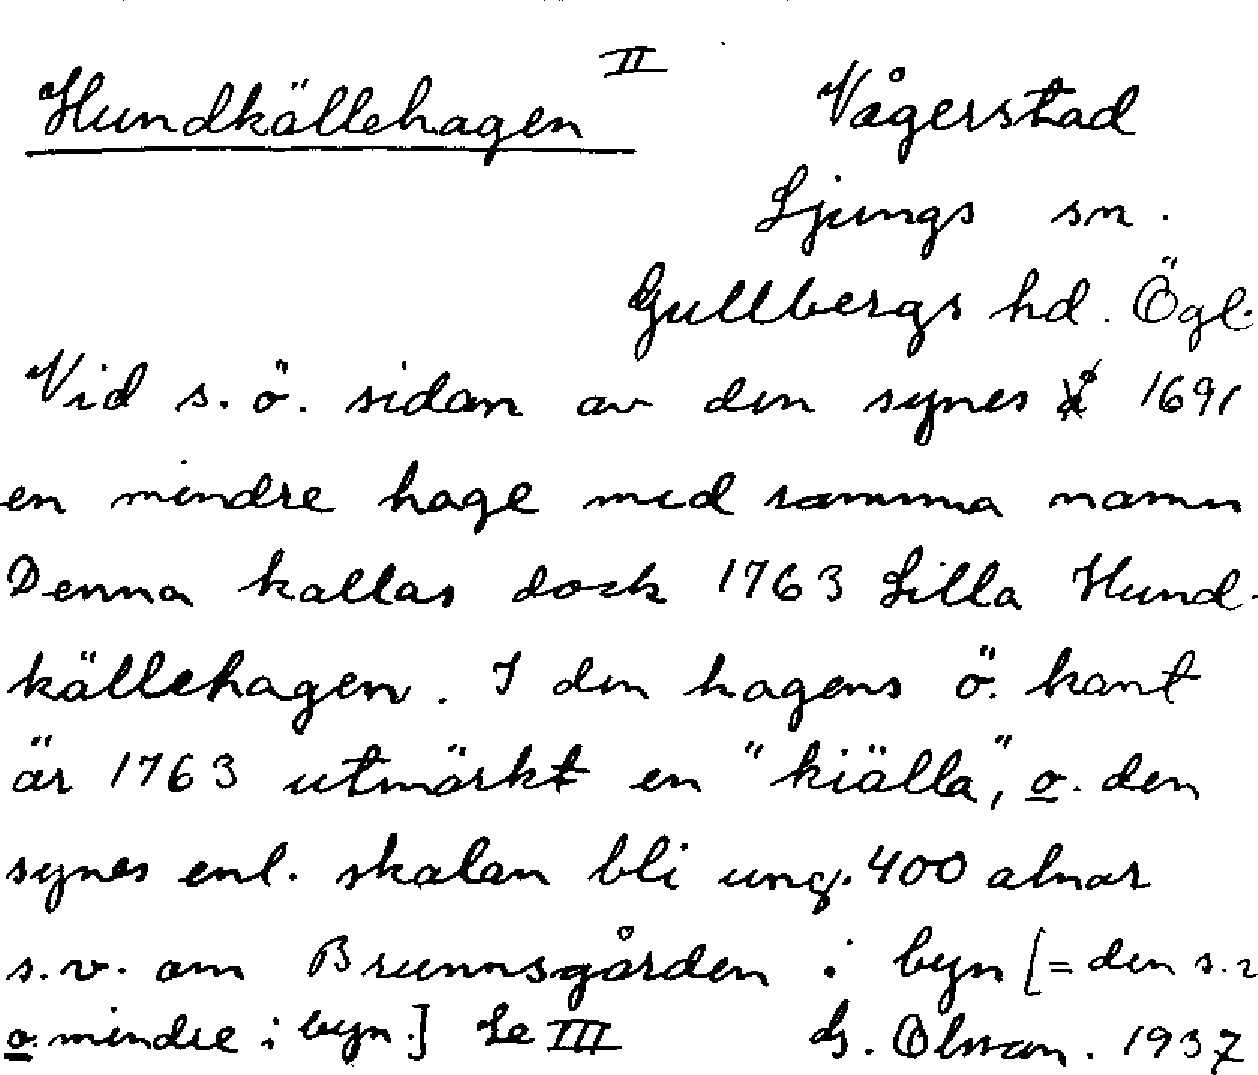 Hundkällehagen II Vågerstad
Ljungs sn.
Gullbergs hd. Ögl.
Vid s.ö. sidan av den synes å 1691
en mindre hage med samma namn
Denna kallas dock 1763 Lilla Hund-
källehagen. I den hagens ö. kant
är 1763 utmärkt en "kiälla", o. den
synes enl. skalan bli ung. 400 alnar
s.v. om Brunnsgården i byn [= den s.
o. mindre i byn.] Se III G. Olsson. 1937